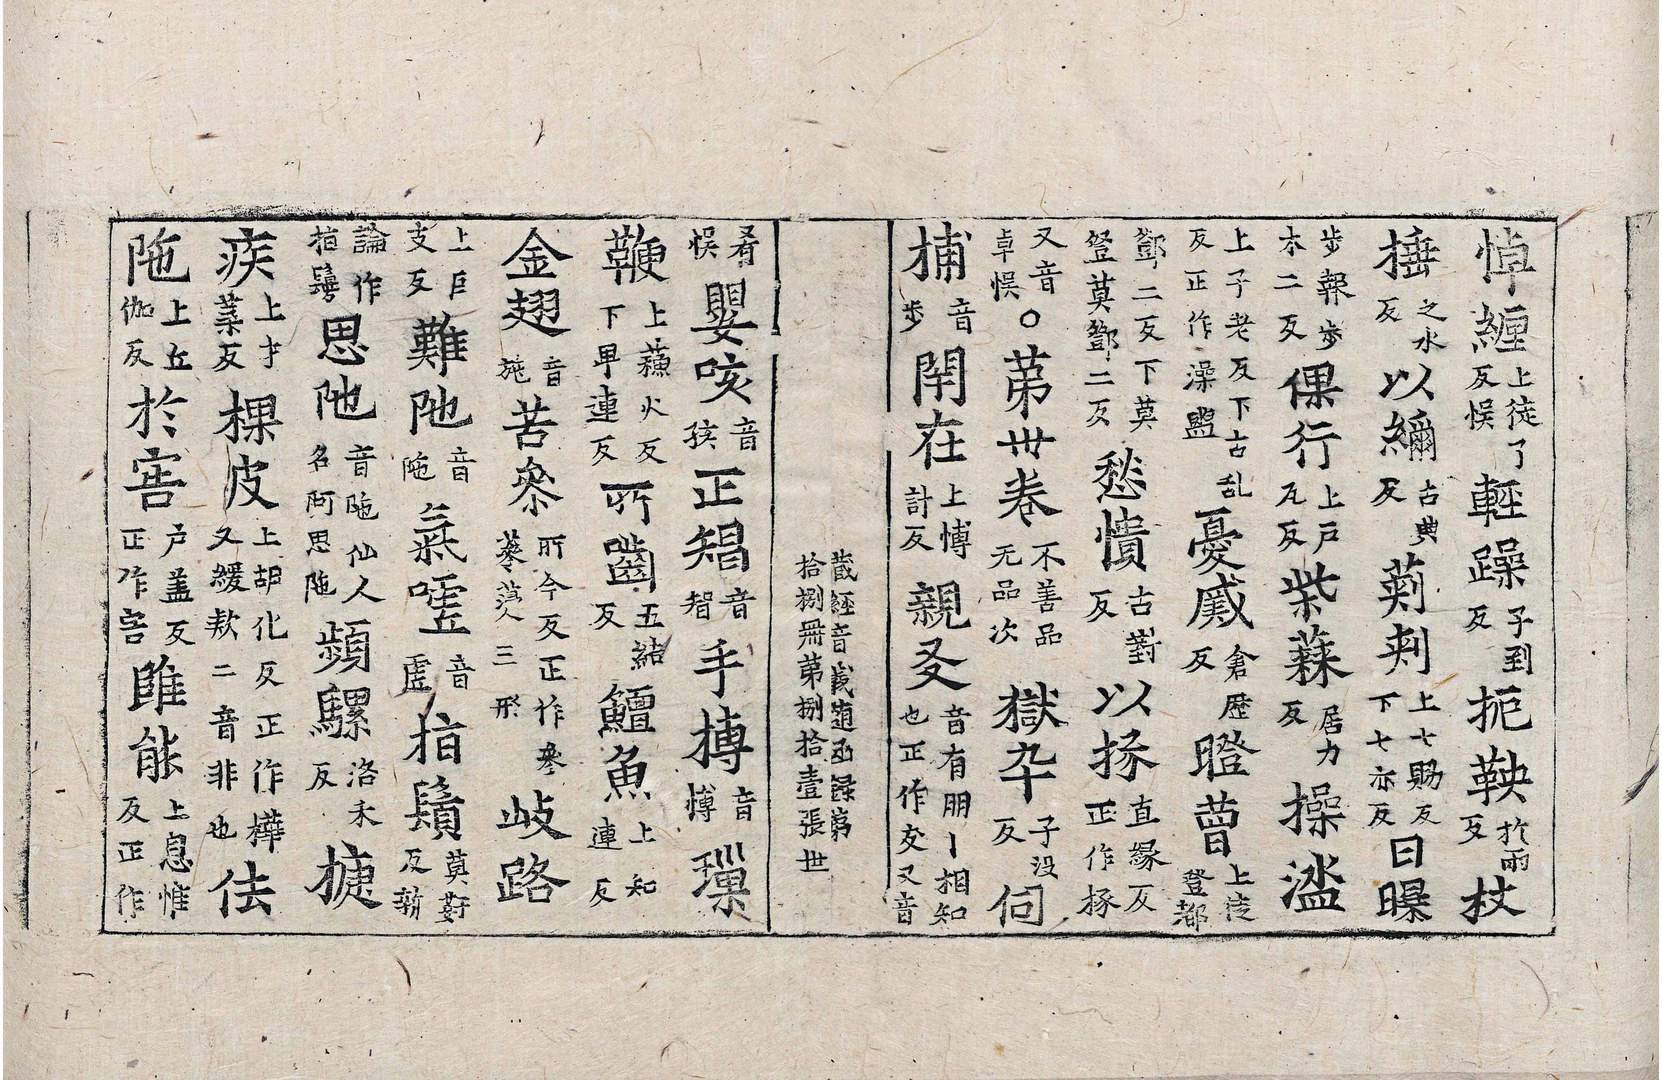 悼纏上徒了反悮輕躁子到反扼鞅於兩反杖
捶之水反以繝古典反䓶㓨上七賜反下七亦反日曝
步報步木二反倮行上戶瓦反柴蘇居力反操濫
上子老反下古乱反正作澡盥憂慼倉歷反瞪瞢上澄
鄧二反下莫登莫鄧二反愁憒古對反以掾直緣反正作掾
又音卓悮○苐卅卷不善品无品次獄卒子没反伺
捕音步閇在上愽計反親友音有朋丨相知也正作友又音
藏經音義隨函錄第
拾捌冊第捌拾壹張世
肴悮嬰咳音孩正智音智手搏音愽瓅
鞭上蘓火反下早連反所嚙五結反鱣魚上知連反
金翅音施苦參所今反正作參蔘蓡三形岐路
上巨支反難陁音陁氣噓音虛指鬚莫對反新
論作指鬘思陁音陁仙人名阿思陁頻騾洛禾反揵
疾上才葉反棵皮上胡化反正作樺又緩款二音非也佉
陁上丘伽反於害戶盖反正作害雎能上息惟反正作